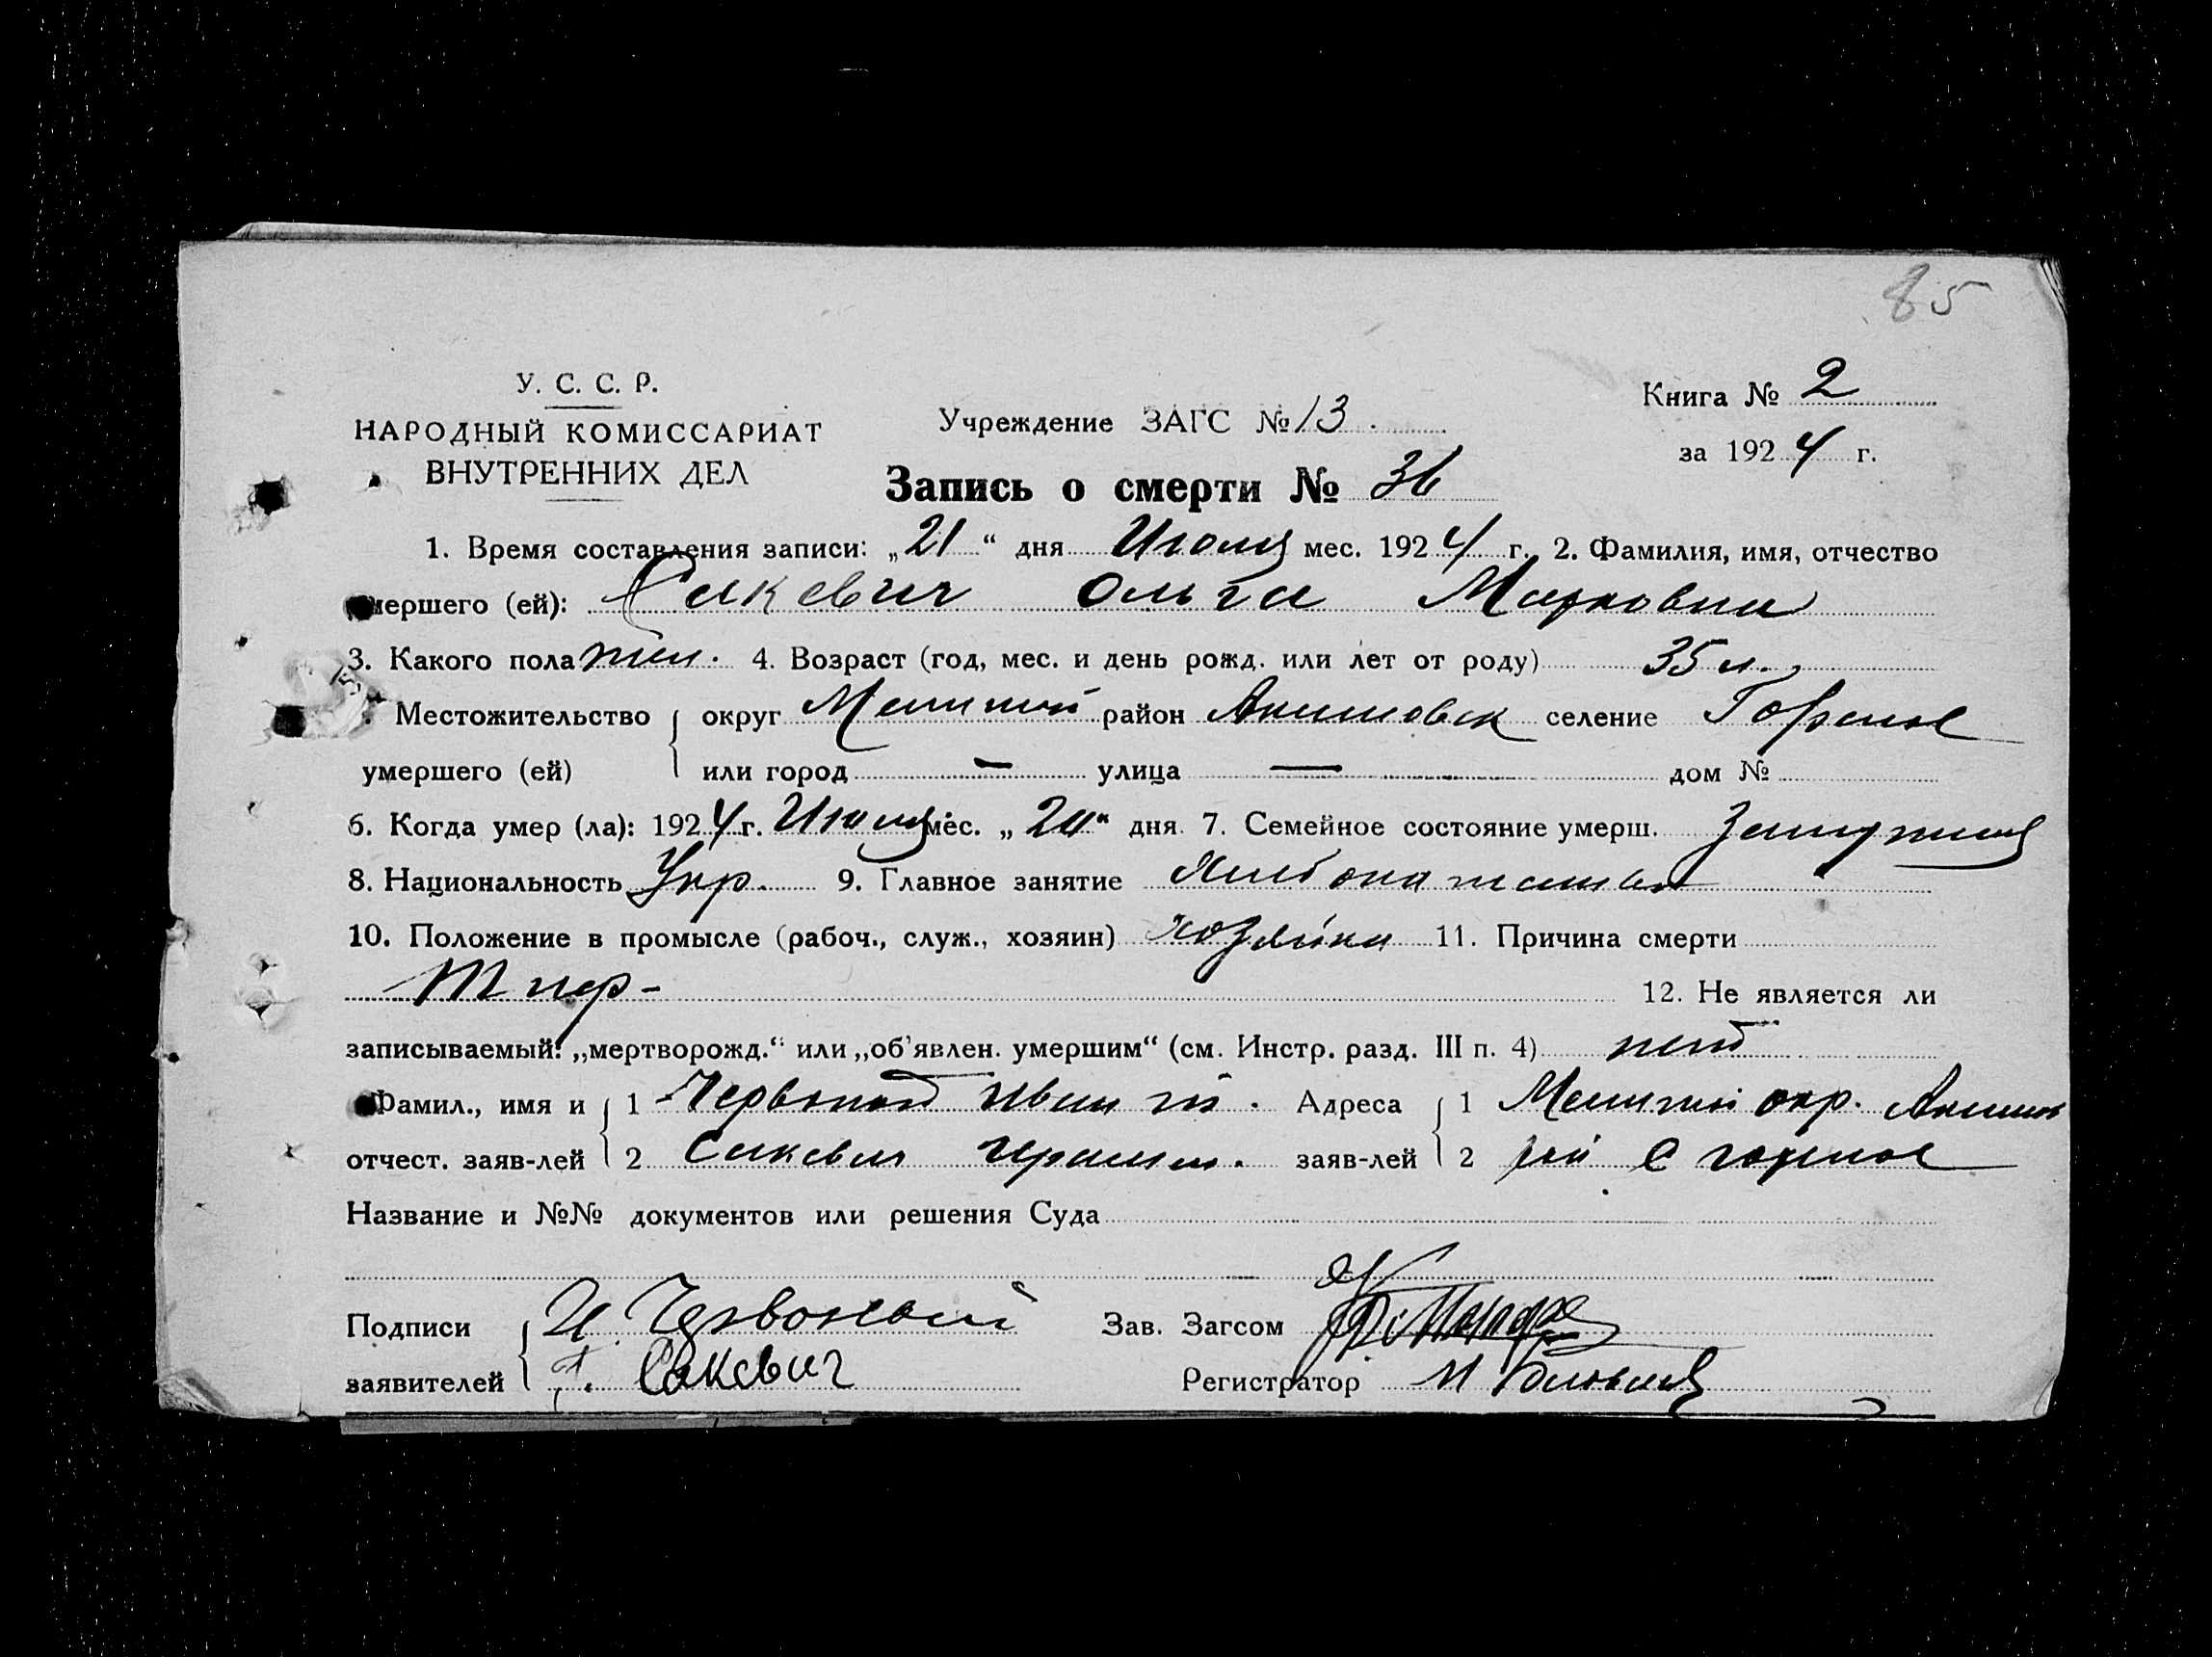 85
У. С. С. Р.
НАРОДНЫЙ КОМИССАРИАТ
ВНУТРЕННИХ ДЕЛ
Учреждение ЗАГС № 13.
Книга № 2
за 1924 г.
Запись о смерти № 36
1. Время составления записи: „21“ дня Июля мес. 1924 г. 2. Фамилия, имя, отчество
умершего (ей): Сакевич Ольга Марковна
3. Какого пола жен. 4. Возраст (год, мес. и день рожд. или лет от роду) 35 л.
Местожительство округ район Акимовск селение Горелое
умершего (ей) или город — улица — дом №
6. Когда умер (ла): 1924 г. Июля мес. „20“ дня 7. Семейное состояние умерш. Замужняя
8. Национальность Укр. 9. Главное занятие Хлебопашество
10. Положение в промысле (рабоч., служ., хозяин) хозяйка 11. Причина смерти
12. Не является ли
записываемый: „мертворожд.“ или „об'явлен. умершим“ (см. Инстр. разд. III п. 4) нет
Фамил., имя и 1 Иван Адреса 1 окр. Акимов
отчест. заяв-лей 2 Сакевич Герасим. заяв-лей 2 рай с горелое
Название и №№ документов или решения Суда
Подписи И. Червоный Зав. Загсом
заявителей Г. Сакевич Регистратор И